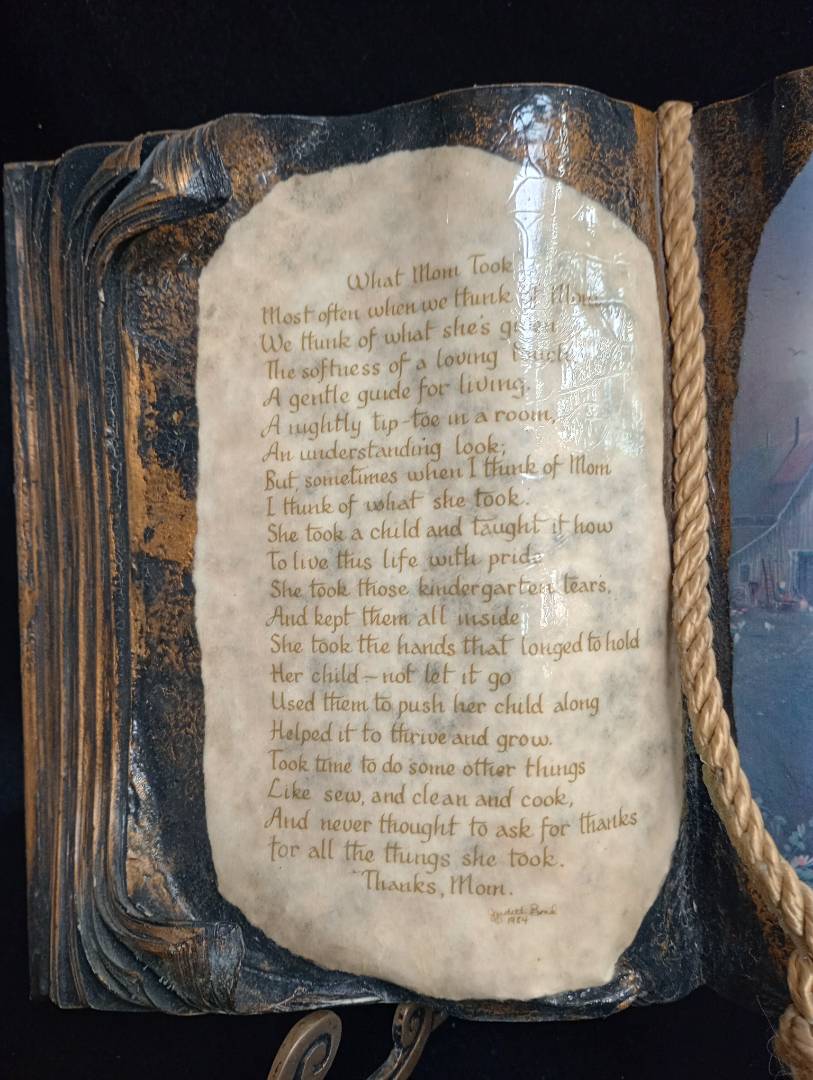 What Mom Took
Most often when we think of Mom
We think of what she's given
The softness of a loving touch
A gentle guide for living.
A nightly tip-toe in a room,
An understanding look;
But sometimes when I think of Mom
I think of what she took.
She took a child and taught it how
To live this life with pride
She took those kindergarten tears,
And kept them all inside
She took the hands that longed to hold
Her child – not let it go
Used them to push her child along
Helped it to thrive and grow.
Took time to do some other things
Like sew, and clean and cook,
And never thought to ask for thanks
for all the things she took.
Thanks, Mom.
Judith Bond
© 1984